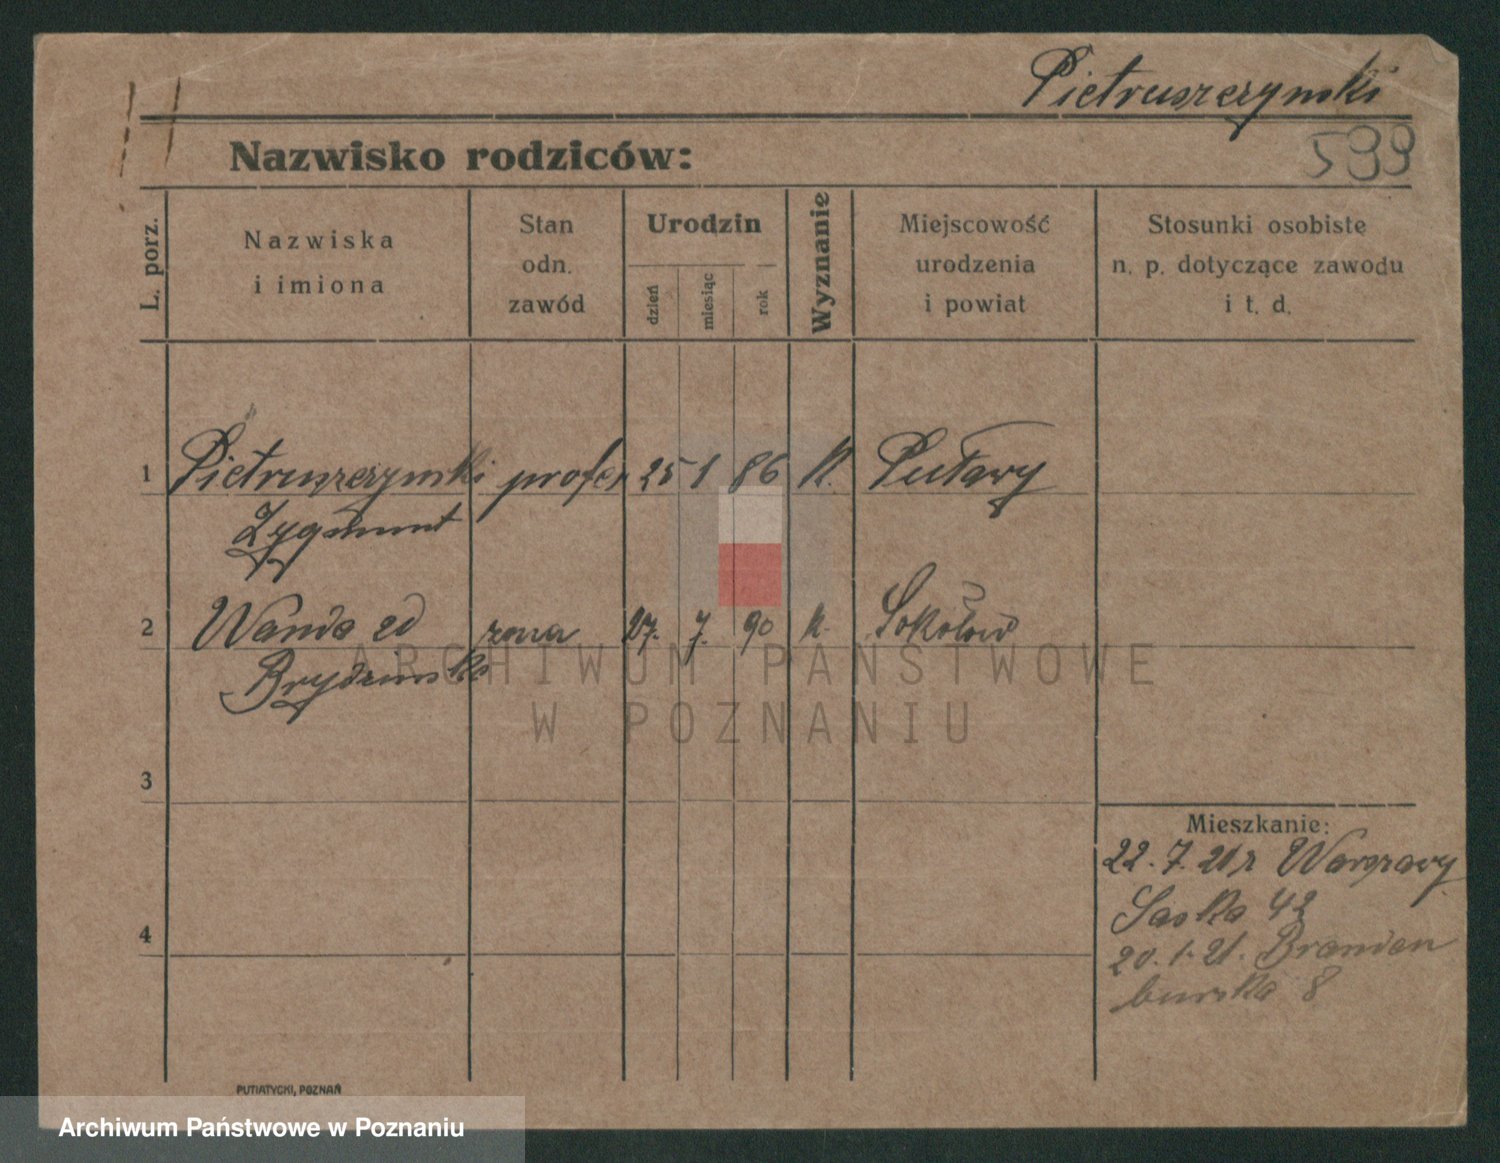 Pietruszczynski
599
Nazwisko rodziców:
L. porz.
Nazwiska
i imiona
Stan
odn.
zawód
Urodzin
dzień
miesiąc
rok
Wyznanie
Miejscowość
urodzenia
i powiat
Stosunki osobiste
n. p. dotyczące zawodu
i t. d.
1 Pietruszczynski profes 25 1 86 K. Puławy
Zygmunt
2 Wanda zd żona 27. 7. 90 k. Sokołów
Brydzinska
ARCHIWUM PAŃSTWOWE
W POZNANIU
3
Mieszkanie:
22. 7. 21 z Warszawy
Saska 42
4
20. 1. 21. Branden
burska 8
PUTIATYCKI, POZNAŃ
Archiwum Państwowe w Poznaniu